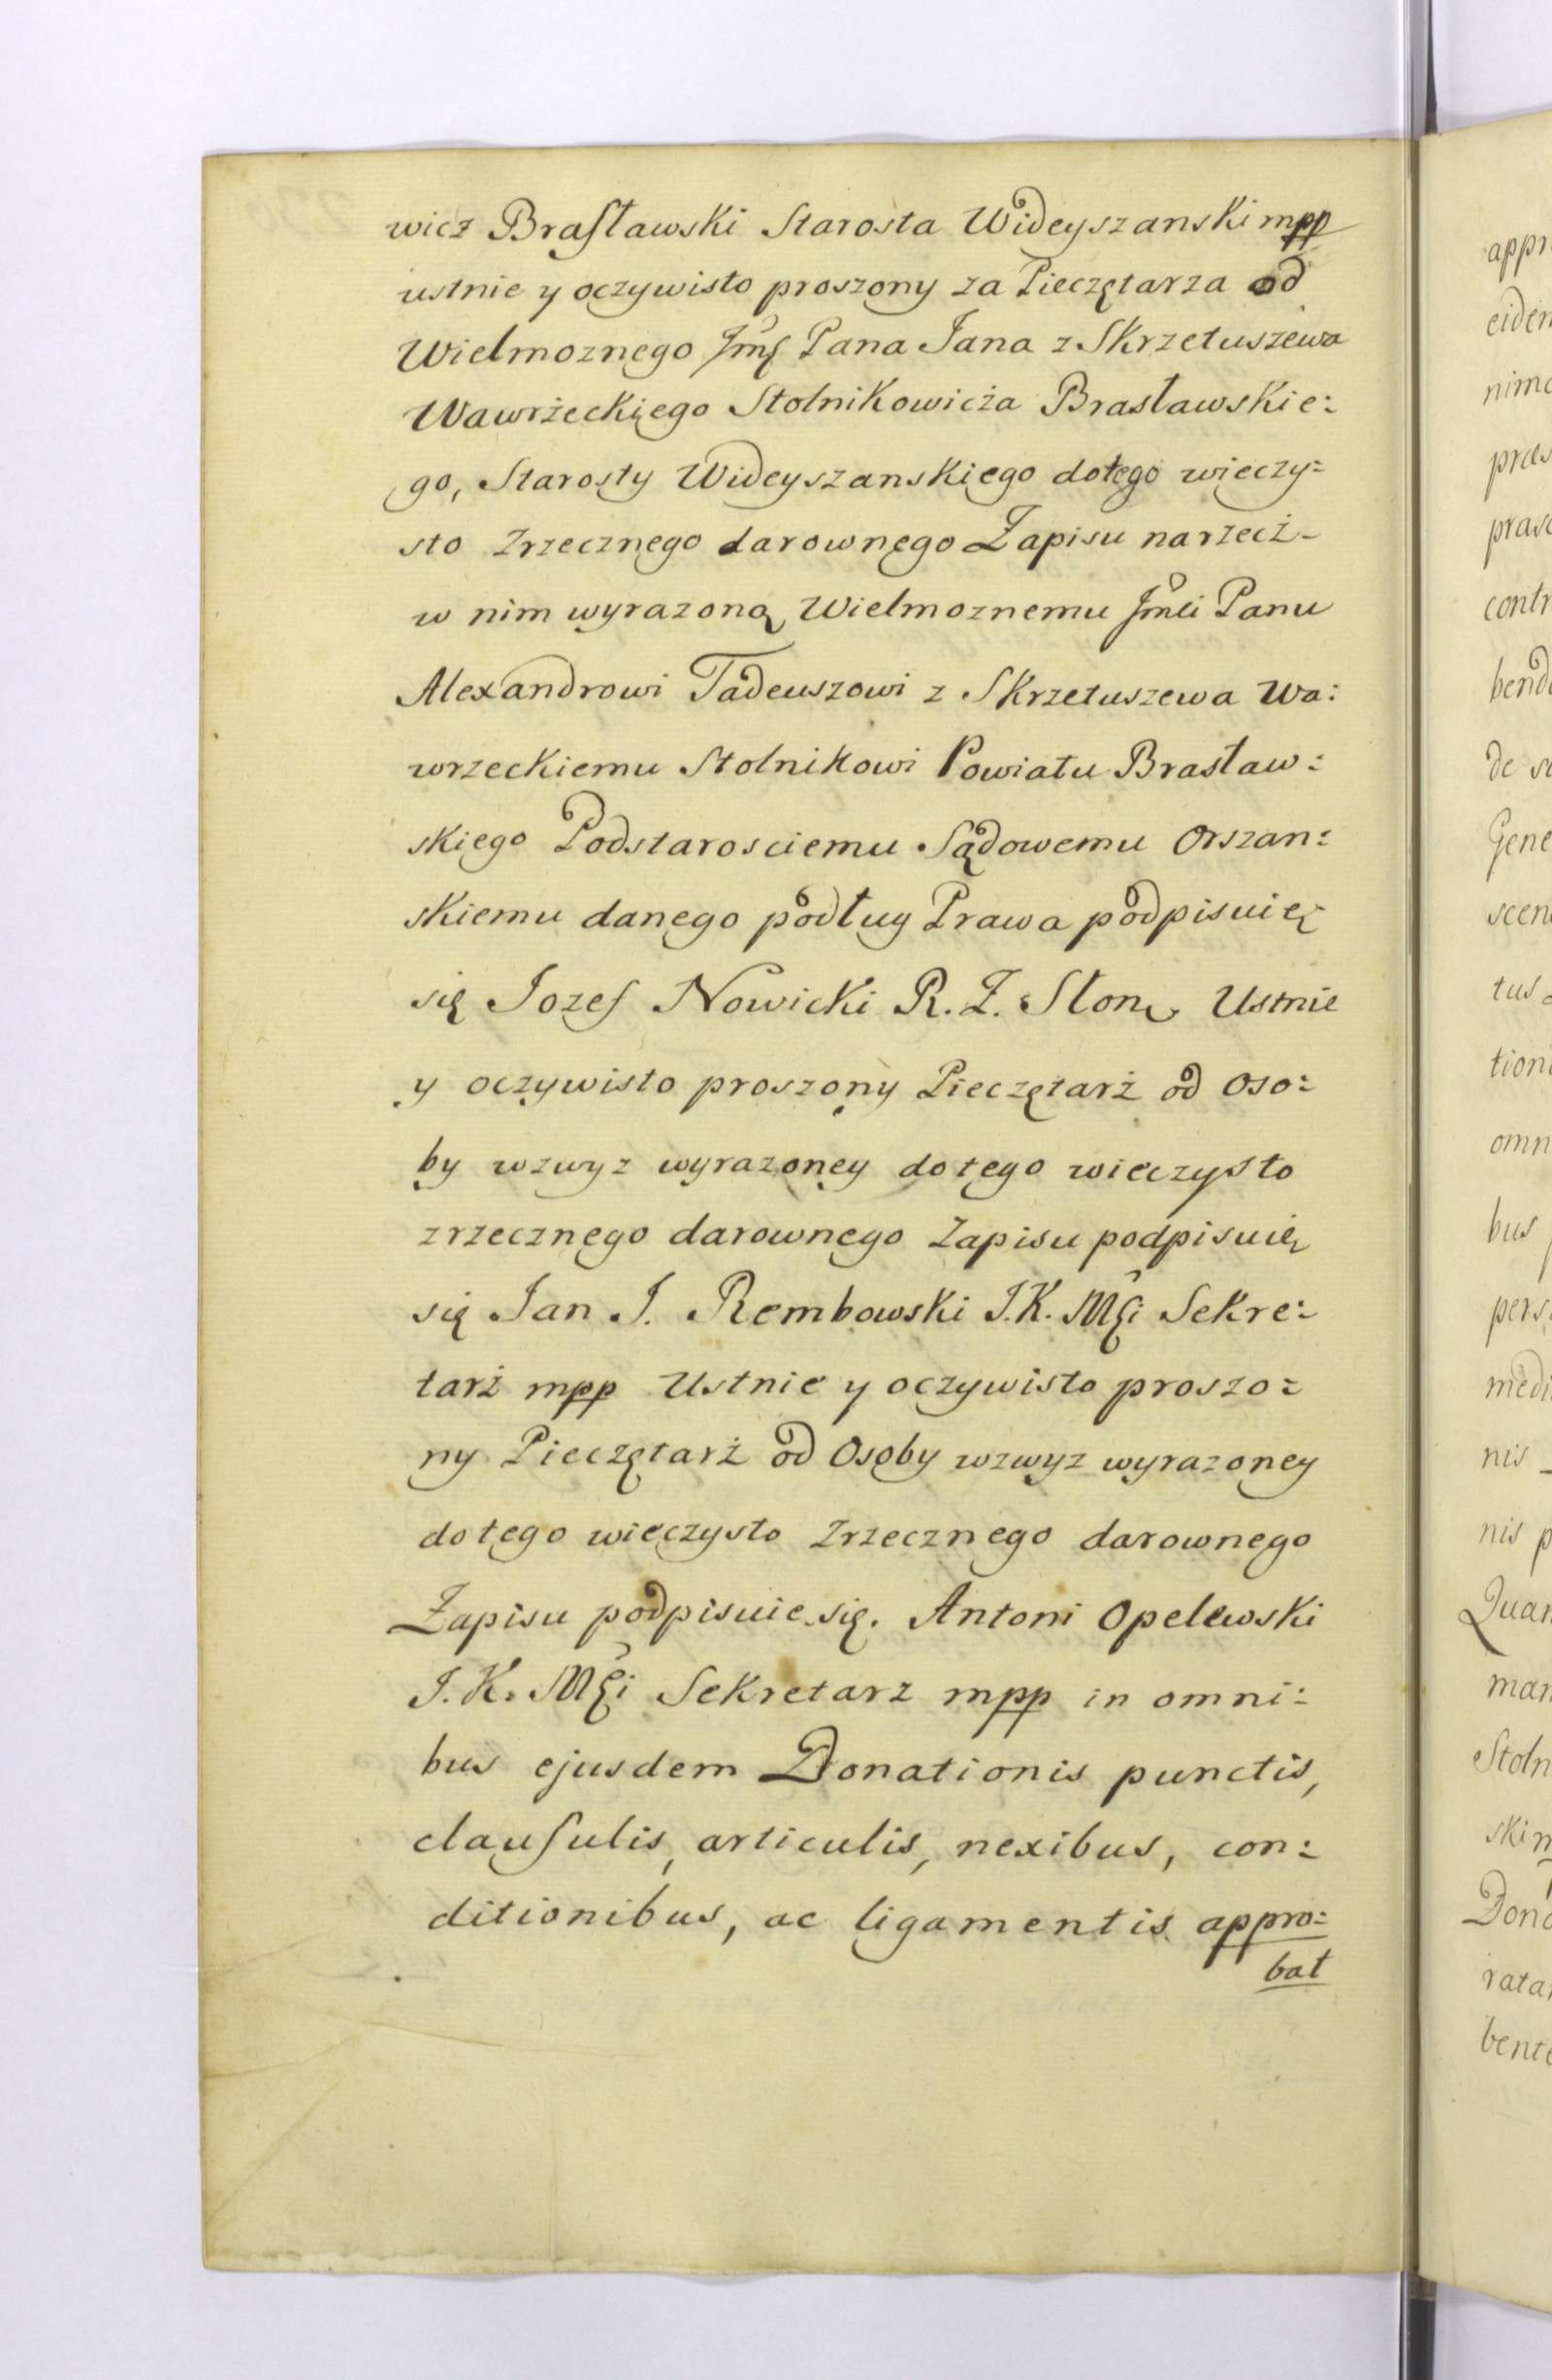 wicz Braſławski Starosta Wideyszanski mpp
ustnie y oczywisto proszony za Pieczętarza od
Wielmoznego Jmſ Pana Jana z Skrzetuszewa
Wawrżeckiego Stolnikowicża Brasławskie:
go, Starosty Wideyszanskiego do tego wieczy:
sto Zrzecznego darownego Zapisu na rzecż-
w nim wyrazoną Wielmoznemu Jmći Panu
Alexandrowi Tadeuszowi z Skrzetuszewa Wa:
wrzeckiemu Stolnikowi Powiatu Brasław:
skiego Podstarosciemu Sądowemu Orszan:
skiemu danego podług Prawa podpisuię
się Jozef Nowicki R. Z. Słon. Ustnie
y oczywisto proszony Pieczętarż od Oso:
by wzwyz wyrazoney do tego wieczysto
zrzecznego darownego Zapisu podpisuię
się Jan J. Rembowski J.K. Mći Sekre:
tarż mpp Ustnie y oczywisto proszo:
ny Pieczętarż od Osoby wzwyz wyrazoney
do tego wieczysto Zrzecznego darownego
Zapisu podpisuie się. Antoni Opelewski
J.K. Mći Sekretarz mpp in omni:
bus ejusdem Donationis punctis,
clauſulis, articulis, nexibus, con:
ditionibus, ac ligamentis appro:
bat
appr
eiden
nimo
præs
contr
bend
de
Gene
scen
tus
tioni
omn
bus
pers
medi
nis
nis p
Quan
man
Stoln
skim
Dona
ratam
bente